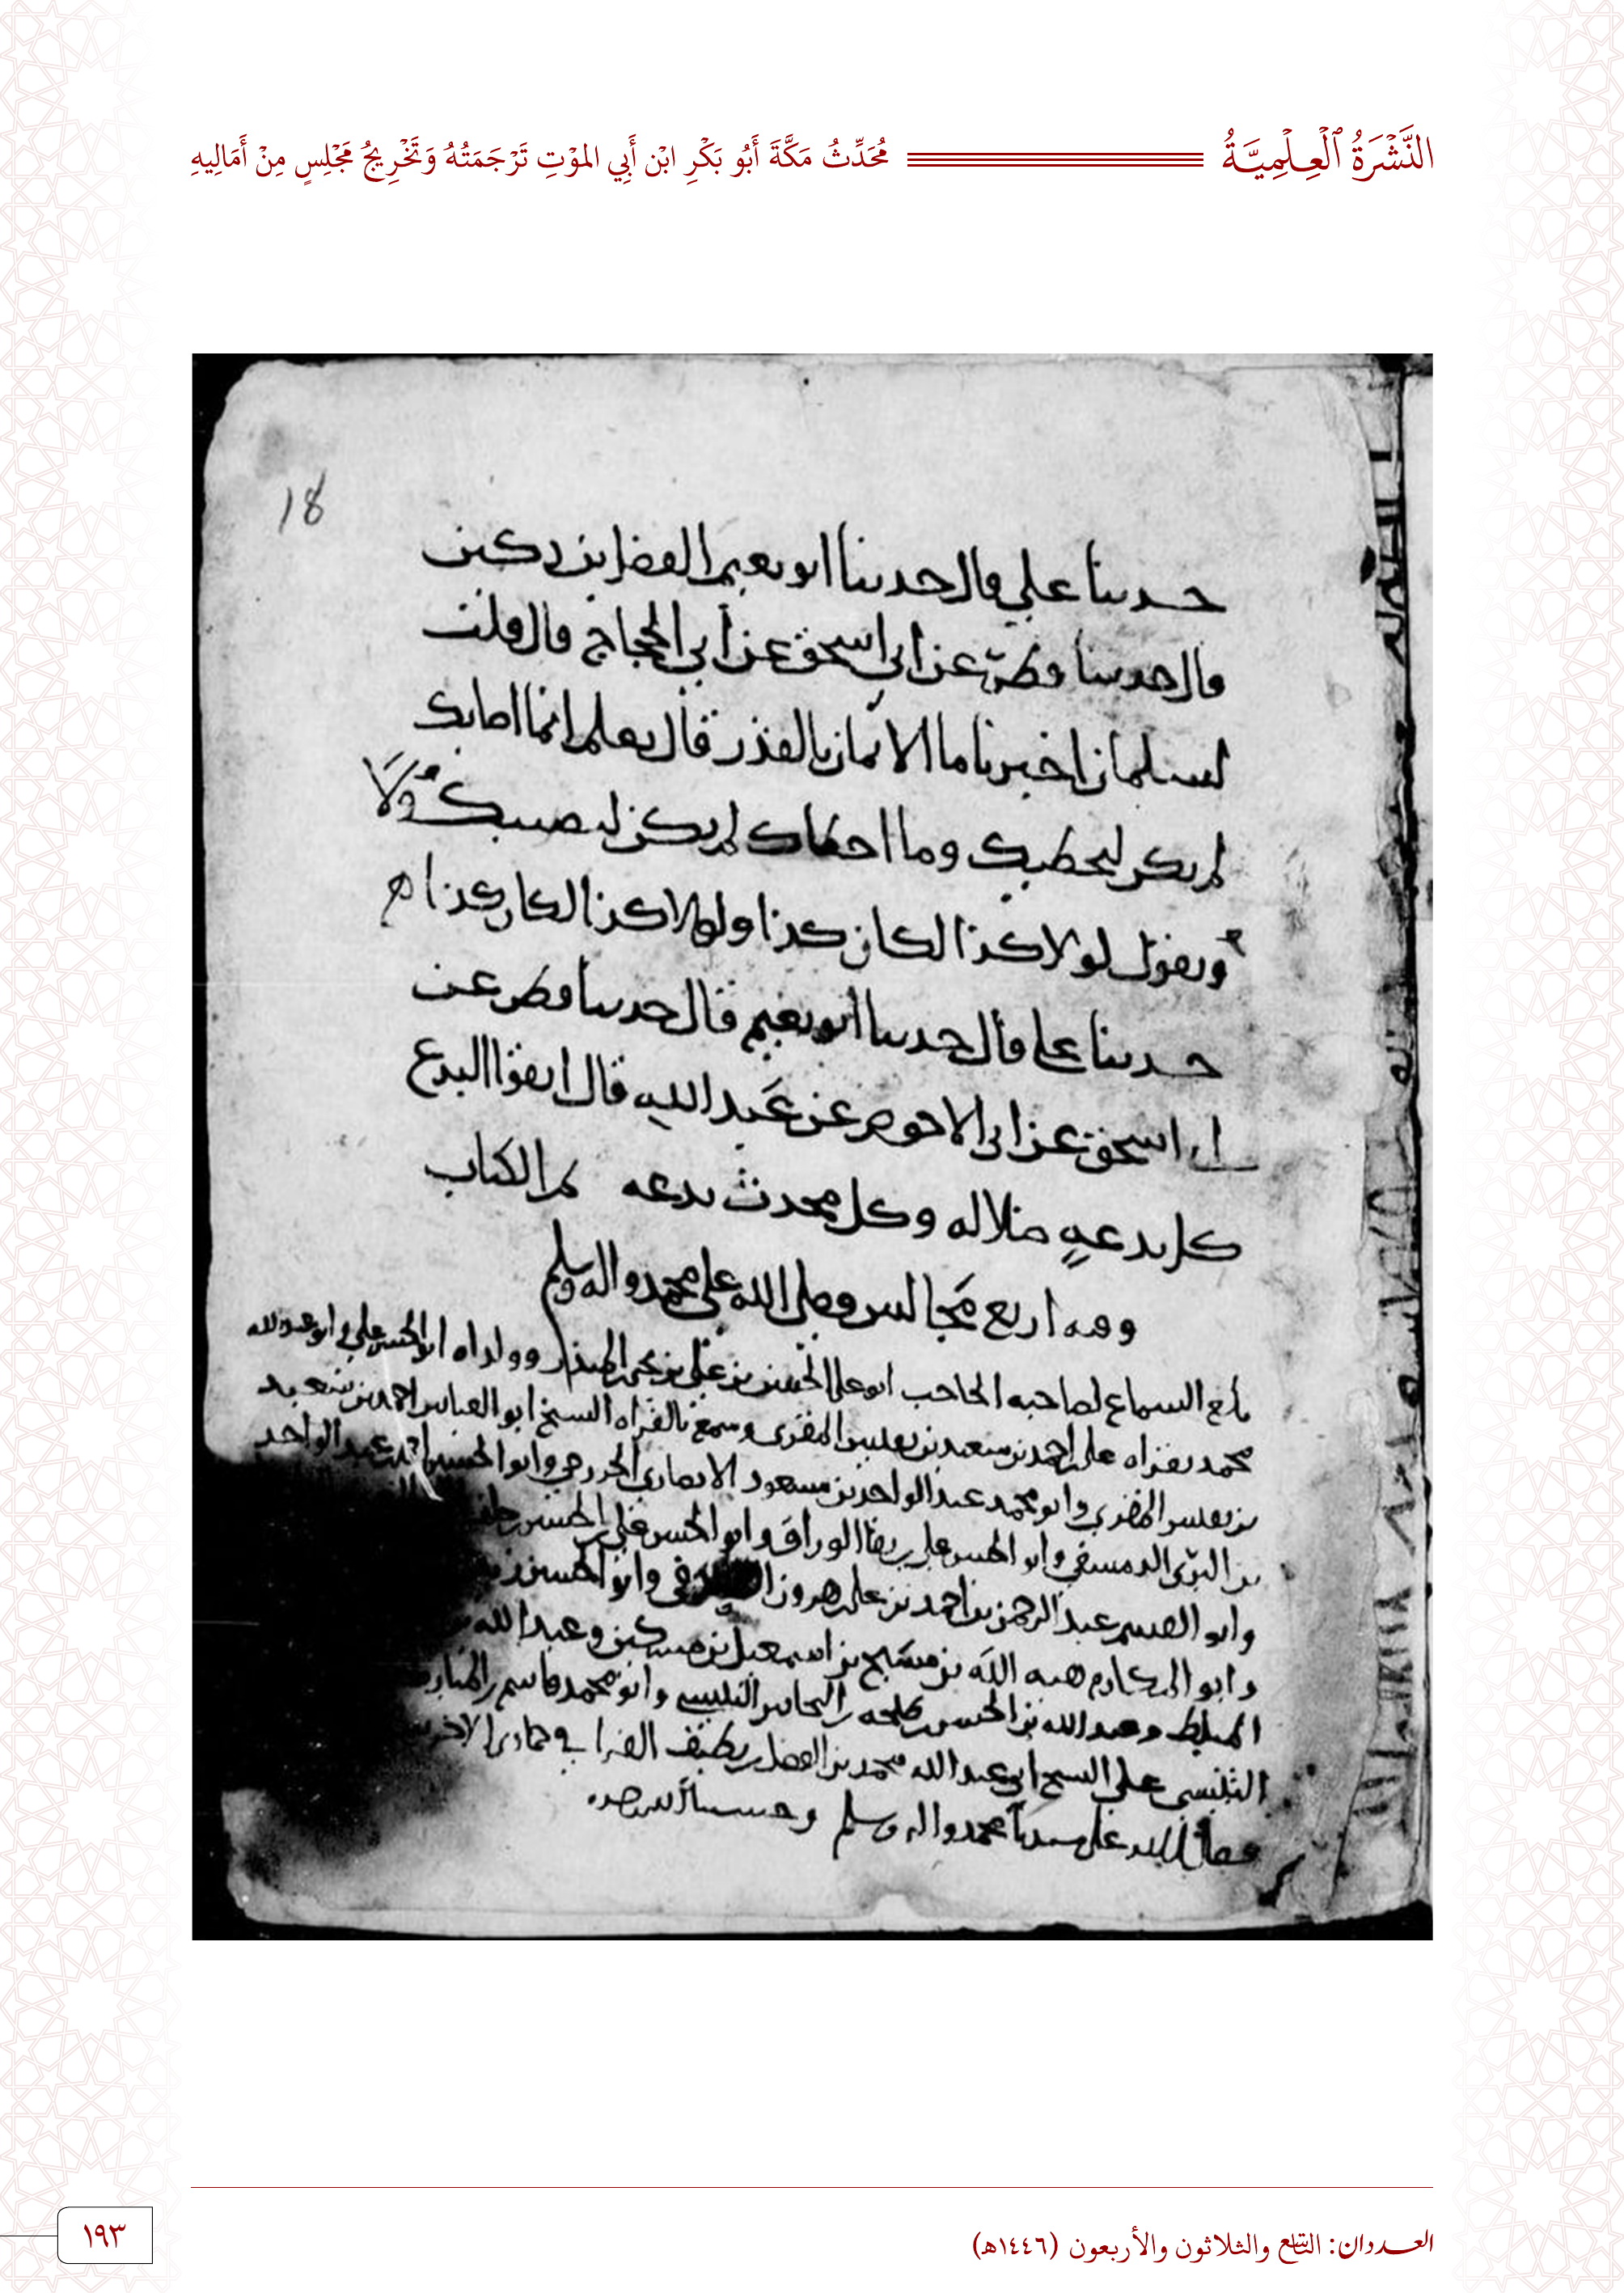 النَّشْرَةُ ٱلْعِلْمِيَّةُ
مُحَدِّثُ مَكَّةَ أَبُو بَكْرِ ابْن أَبِي الموْتِ تَرْجَمَتُهُ وَتَخْرِيجُ مَجْلِسٍ مِنْ أَمَالِيهِ
18
حدثنا علي قال حدثنا ابو نعيم الفضل بن دكين
قال حدثنا فطر عن ابي اسحق عن ابي الحجاج قال قلت
لسلمان اخبرنا ما الايمان بالقدر قال يعلم انما اصابك
لم يكن ليخطيك وما اخطاك لم يكن ليصيبك ولا
ويقول لولا كذا لكان كذا ولولا كذا لكان كذا ه
حدثنا علي قال حدثنا ابو نعيم قال حدثنا فطر عن
ابي اسحق عن ابي الاحوص عن عبد الله قال اتقوا البدع
كل بدعه ضلاله وكل محدث بدعه تم الكتاب
وهه اربع مجالس وصلى الله على محمد واله وسلم
بلغ السماع لصاحبه الحاجب ابو علي الحسن بن علي بن محمد وولداه ابو الحسن علي وابو عبد الله
محمد بقراه علي احمد بن سعيد بن المقرى وسمع بالقراه الشيخ ابو العباس احمد بن سعيد
بن المقرى وابو محمد عبد الواحد بن مسعود الانصاري وابو الحسين احمد بن عبد الواحد
بن البري الدمشقي وابو الحسن علي بن بقا الوراق وابو الحسن علي بن الحسن
وابو القسم عبد الرحمن بن احمد بن علي بن هرون وابو الحسن
وابو المكارم هبه الله بن اسمعيل بن مسكين وعبد الله
وعبد الله بن الحسن بن طلحه بن النحاس التنيسي وابو محمد قاسم بن
التنيسي على الشيخ ابي عبد الله محمد بن الفضل بن نظيف الفرا في جمادى الاخره
وصلى الله على سيدنا محمد واله وسلم وحسبنا الله وحده
العــددان: التاسع والثلاثون والأربعون (١٤٤٦هـ)
١٩٣